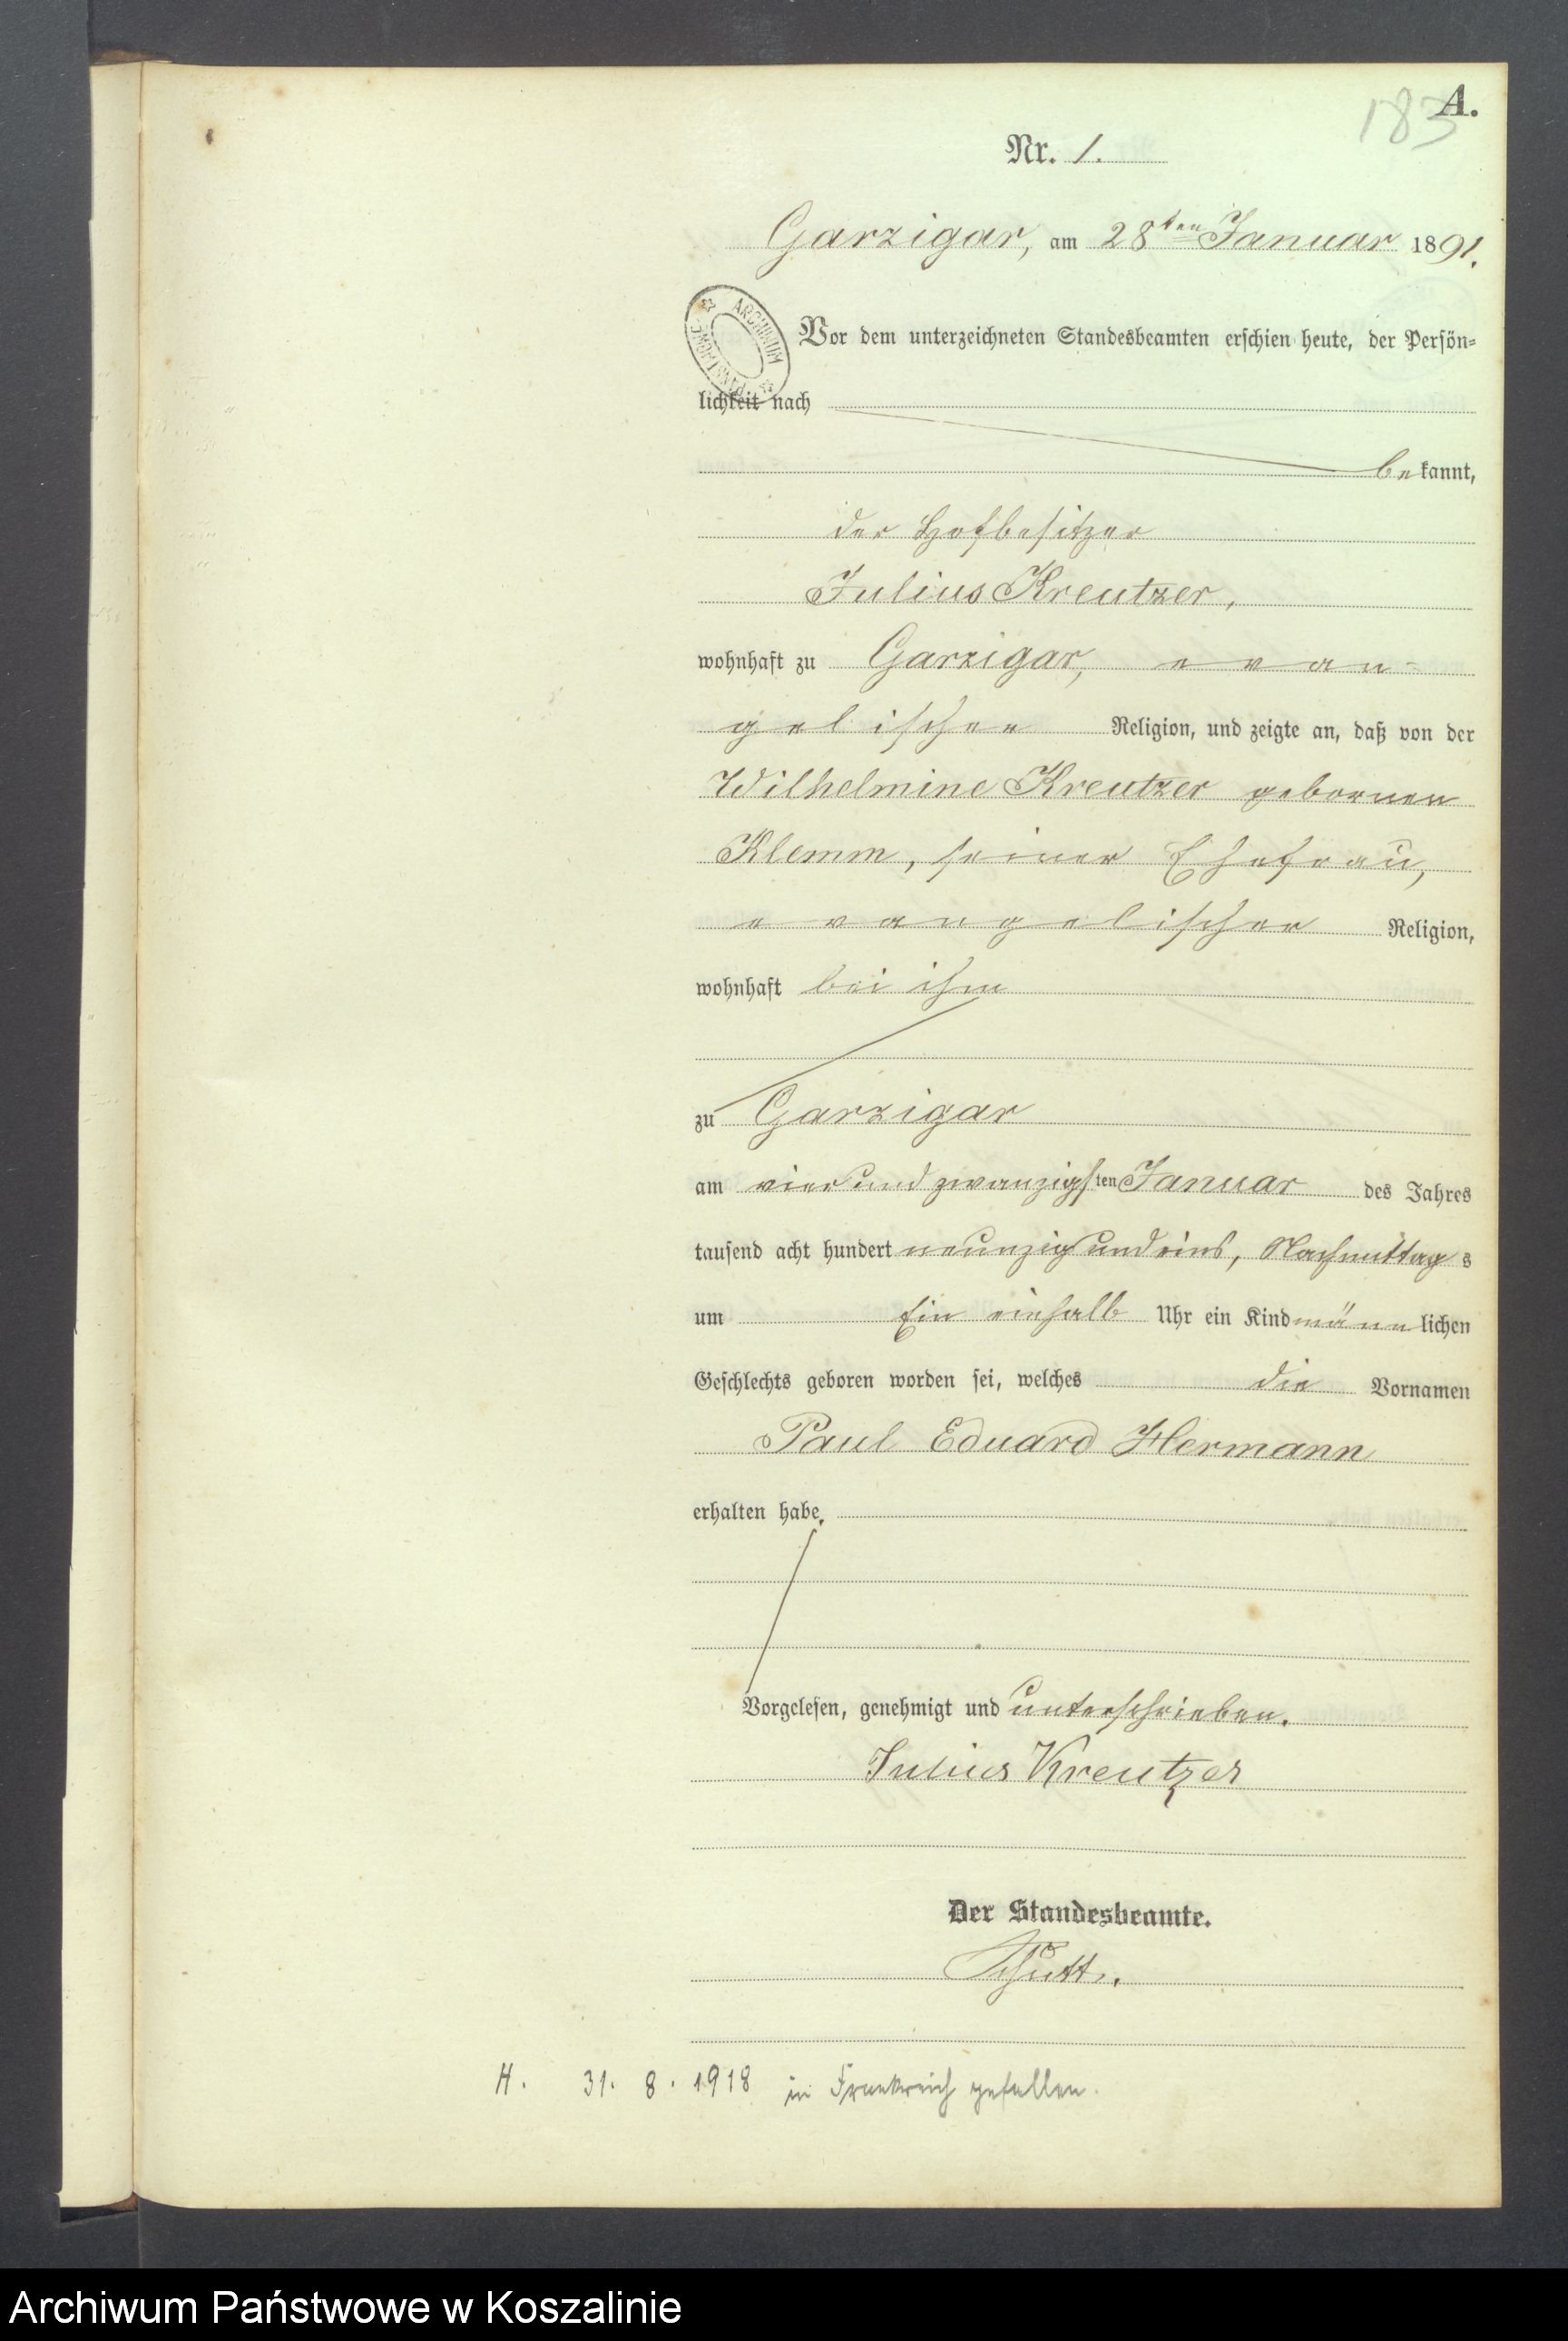 A.
183
Nr. 1.
Garzigar, am 28ten Januar 1891.
ARCHIWUM
Vor dem unterzeichneten Standesbeamten erschien heute, der Persön=
lichkeit nach
bekannt,
der Hofbesitzer
Julius Kreutzer,
wohnhaft zu Garzigar, evan-
gelischer Religion, und zeigte an, daß von der
Wilhelmine Kreutzer gebornen
Klemm, seiner Ehefrau,
evangelischer Religion,
wohnhaft bei ihm
zu Garzigar
am vierundzwanzigsten Januar des Jahres
tausend acht hundert neunzig und eins, Nachmittags
um Ein einhalb Uhr ein Kind männlichen
Geschlechts geboren worden sei, welches die Vornamen
Paul Eduard Hermann
erhalten habe.
Vorgelesen, genehmigt und unterschrieben.
Julius Kreutzer
Der Standesbeamte.
H. 31. 8. 1918 in Frankreich gefallen.
Archiwum Państwowe w Koszalinie